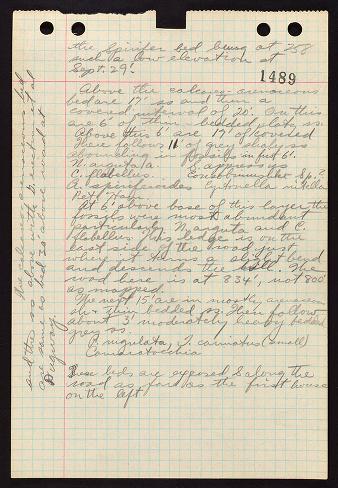 the Spirifer bed being at 758
such a low elevation at
Sept. 29!
1489
Above the calcareo-arenaceous
bed are 17' ss and then a
covered interval of 20'. On this
are 6' of thin bedded platy ss.
Above this 6' are 17' of covered
There follows 11' of grey shaly ss
abounding in fossils in first 6'.
N. angulata
C. flabellus
A. spiriferoides
At 6' above base of this layer the
fossils were most abundant
particularly N. angulata and C.
flabellus. This ledge is on the
east side of the road just
where it turns a slight bend
and descends the hill. The
road here is at 834', not 800'
as mapped.
The next 15' are in mostly arenaceous
sh + thin bedded ss. Then follow
about 3' moderately heavy bedded
grey ss.
P. rugulata, T. carinatus (small)
Camarotoechia
These beds are exposed S along the
road as far as the first house
on the left.
The calcareo-arenaceous bed
and the ss above with
are the same as bed 20' above road at
Dugway.